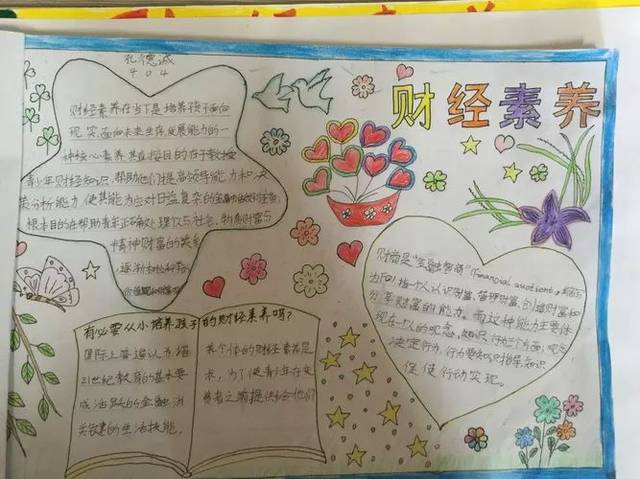 孔德诚
404
财经素养
财经素养在当下是培养孩子面向
现实面向未来生存发展能力的一
种核心素养其直接目的在于教授
青少年财经知识,帮助他们提高领导能力和决
策分析能力,使其能力应对日益复杂的金融
根本目的在帮助青年正确处理仅与社会,物质财富与
精神财富的关系
逐渐
财商是"金融智商"(Financial quotient)
为FQ指个人认识财富、管理财富、创造财富和
分享财富的能力。而这种能力主要体
现在个人的观念、知识、行为三个方面,观念
决定行为,行为要知识指导,知识
促使行动实现。
有必要从小培养孩子的财经素养吗?
国际上普遍认为,
21世纪教育的基本要
成活跃的金融消
关键的生活技能。
养个体的财经素养是
求,为了使青少年在
费者之前提供给他们